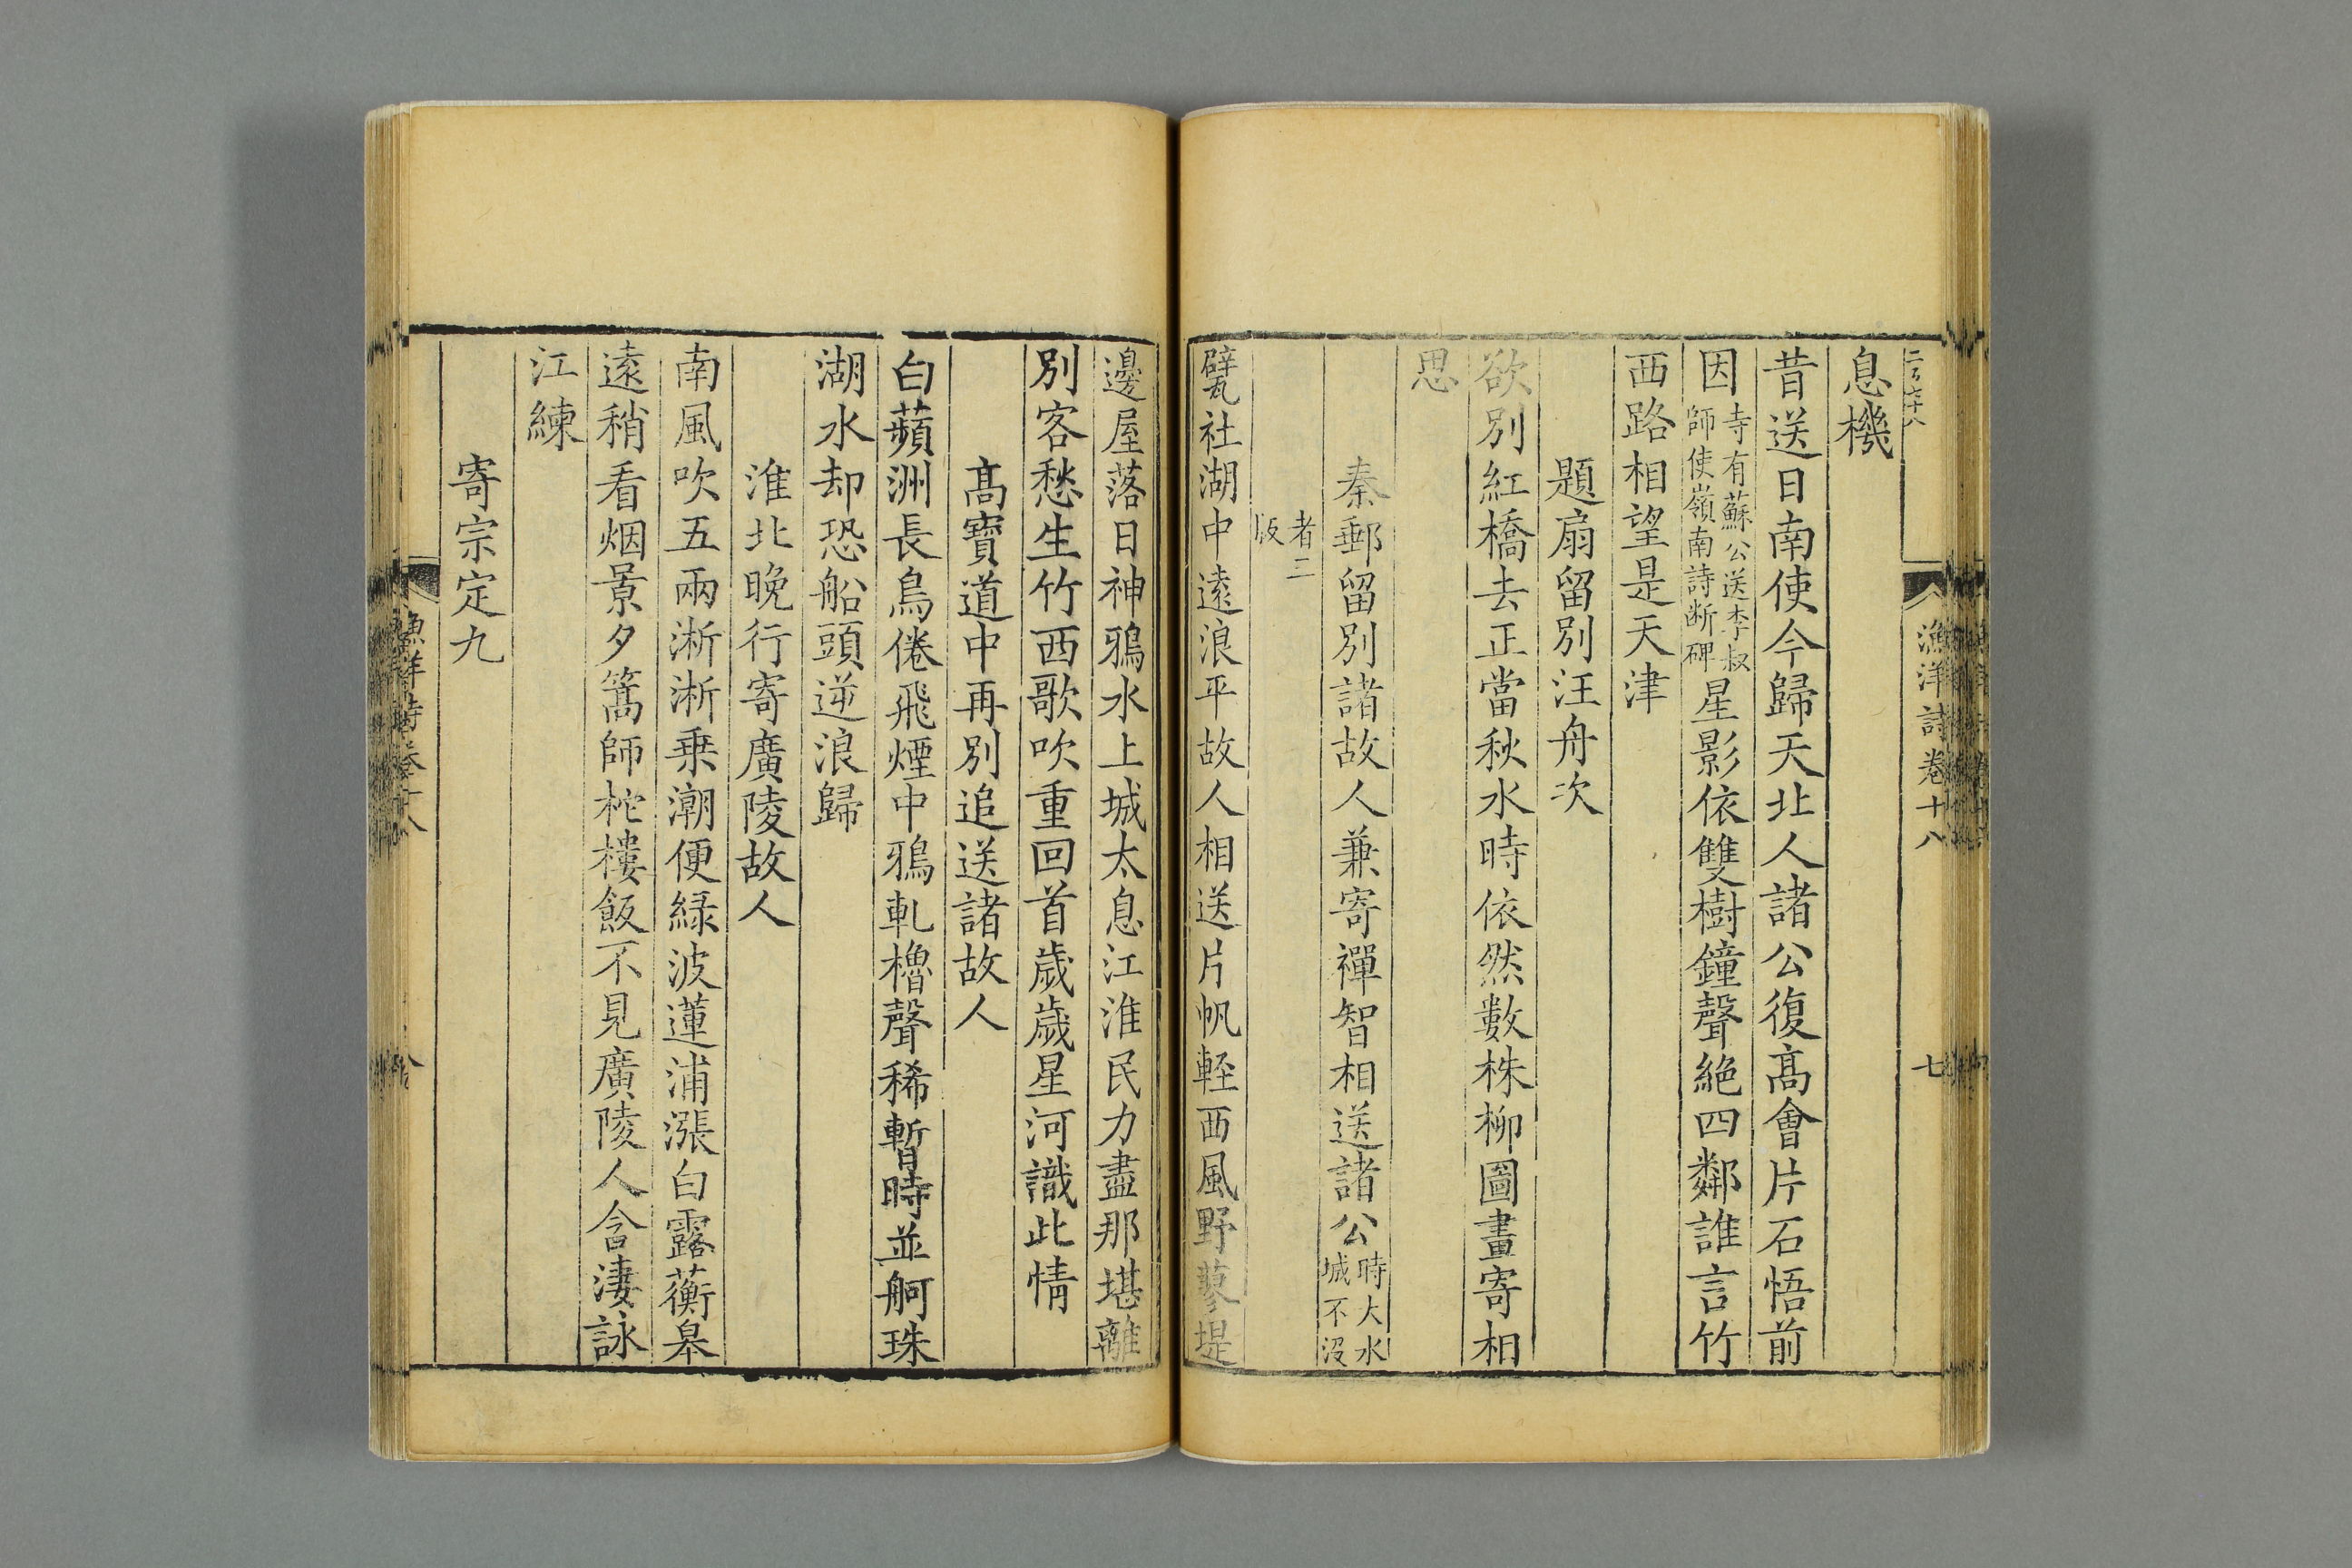 息機
昔送日南使今歸天北人諸公復髙會片石悟前
因寺有蘇公送李叔師使嶺南詩断碑星影依雙樹鐘聲絶四鄰誰言竹
西路相望是天津
題扇留別汪舟次
欲別紅橋去正當秋水時依然數株柳圖畫寄相
思
秦郵留別諸故人兼寄禪智相送諸公時大水城不沒
者二版
甓社湖中逺浪平故人相送片帆輕西風野蓼堤
漁洋詩卷十八
七
邊屋落日神鴉水上城太息江淮民力盡那堪離
別客愁生竹西歌吹重回首歲歲星河識此情
髙寶道中再別追送諸故人
白蘋洲長鳥倦飛煙中鴉軋櫓聲稀暫時並舸珠
湖水却恐船頭逆浪歸
淮北晚行寄廣陵故人
南風吹五兩淅淅乗潮便緑波蓮浦漲白露蘅皋
逺稍看烟景夕篙師柁樓飯不見廣陵人含淒詠
江練
寄宗定九
漁洋詩卷十八